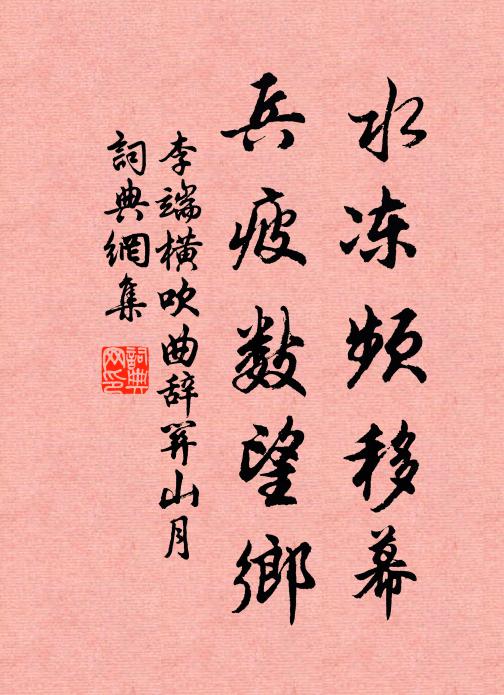 水冻频移幕
兵疲数望鄉
李端橫吹曲辞关山月
詞典網集
詞典网印